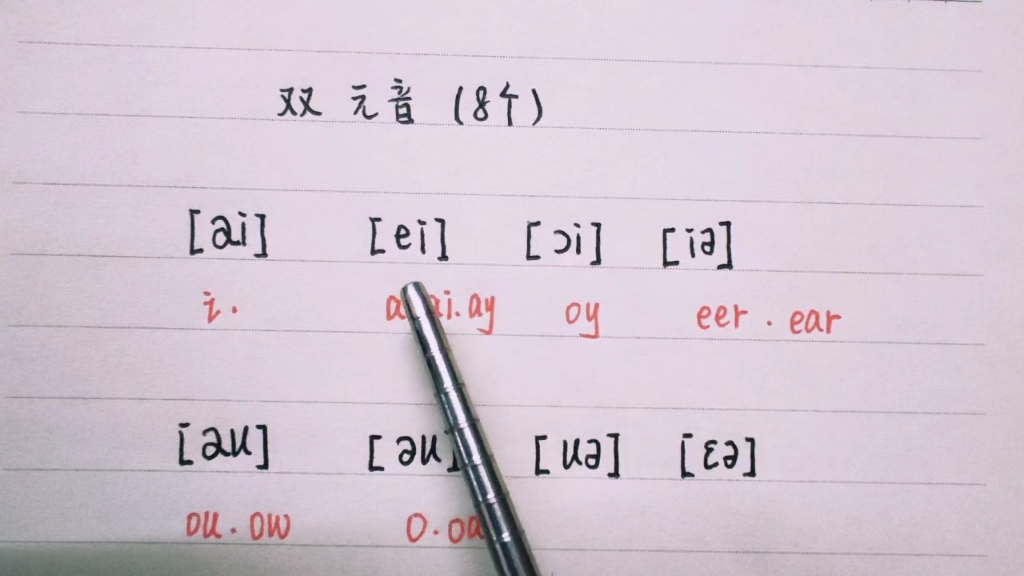 双元音(8个)
[ai] [ei] [ɔi] [iə]
i. a ai.ay oy eer.ear
[au] [əu] [uə] [εə]
ou.ow o.oa